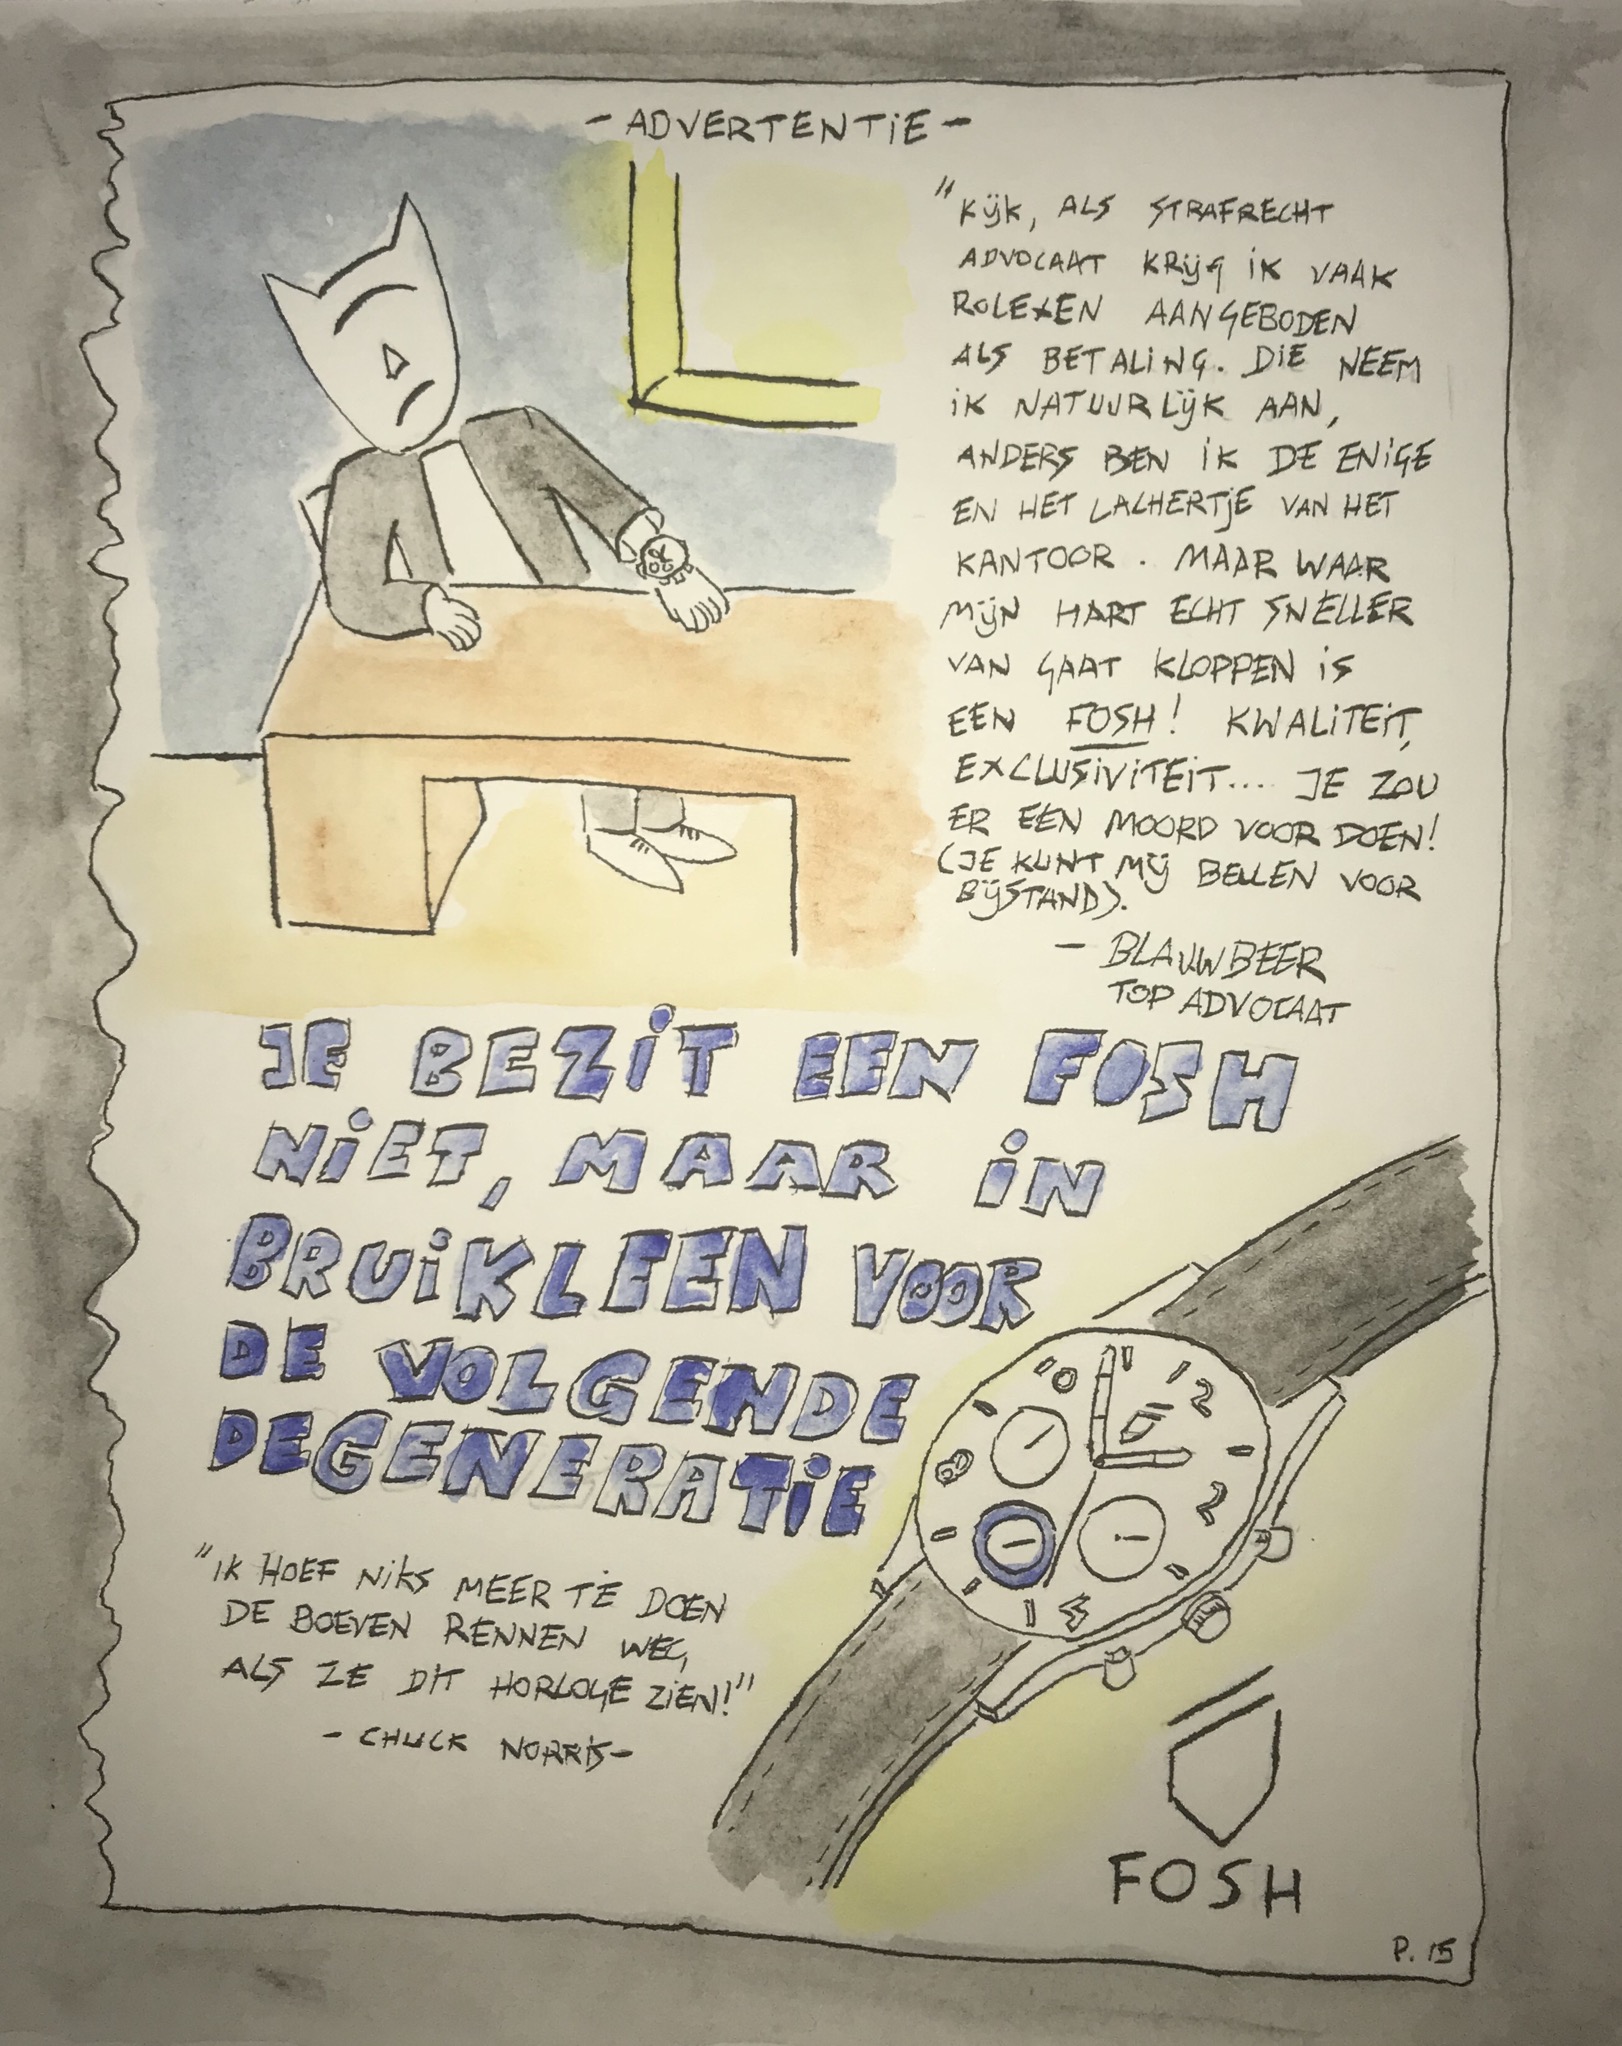 - ADVERTENTIE -
"KIJK, ALS STRAFRECHT
ADVOCAAT KRIJG IK VAAK
ROLEXEN AANGEBODEN
ALS BETALING. DIE NEEM
IK NATUURLIJK AAN,
ANDERS BEN IK DE ENIGE
EN HET LACHERTJE VAN HET
KANTOOR. MAAR WAAR
MIJN HART ECHT SNELLER
VAN GAAT KLOPPEN IS
EEN FOSH! KWALITEIT,
EXCLUSIVITEIT.... JE ZOU
ER EEN MOORD VOOR DOEN!
(JE KUNT MIJ BELLEN VOOR
BIJSTAND).
- BLAUWBEER
TOP ADVOCAAT
JE BEZIT EEN FOSH
NIET, MAAR IN
BRUIKLEEN VOOR
DE VOLGENDE
DEGENERATIE
"IK HOEF NIKS MEER TE DOEN
DE BOEVEN RENNEN WEG,
ALS ZE DIT HORLOGE ZIEN!"
- CHUCK NORRIS -
FOSH
P. 15